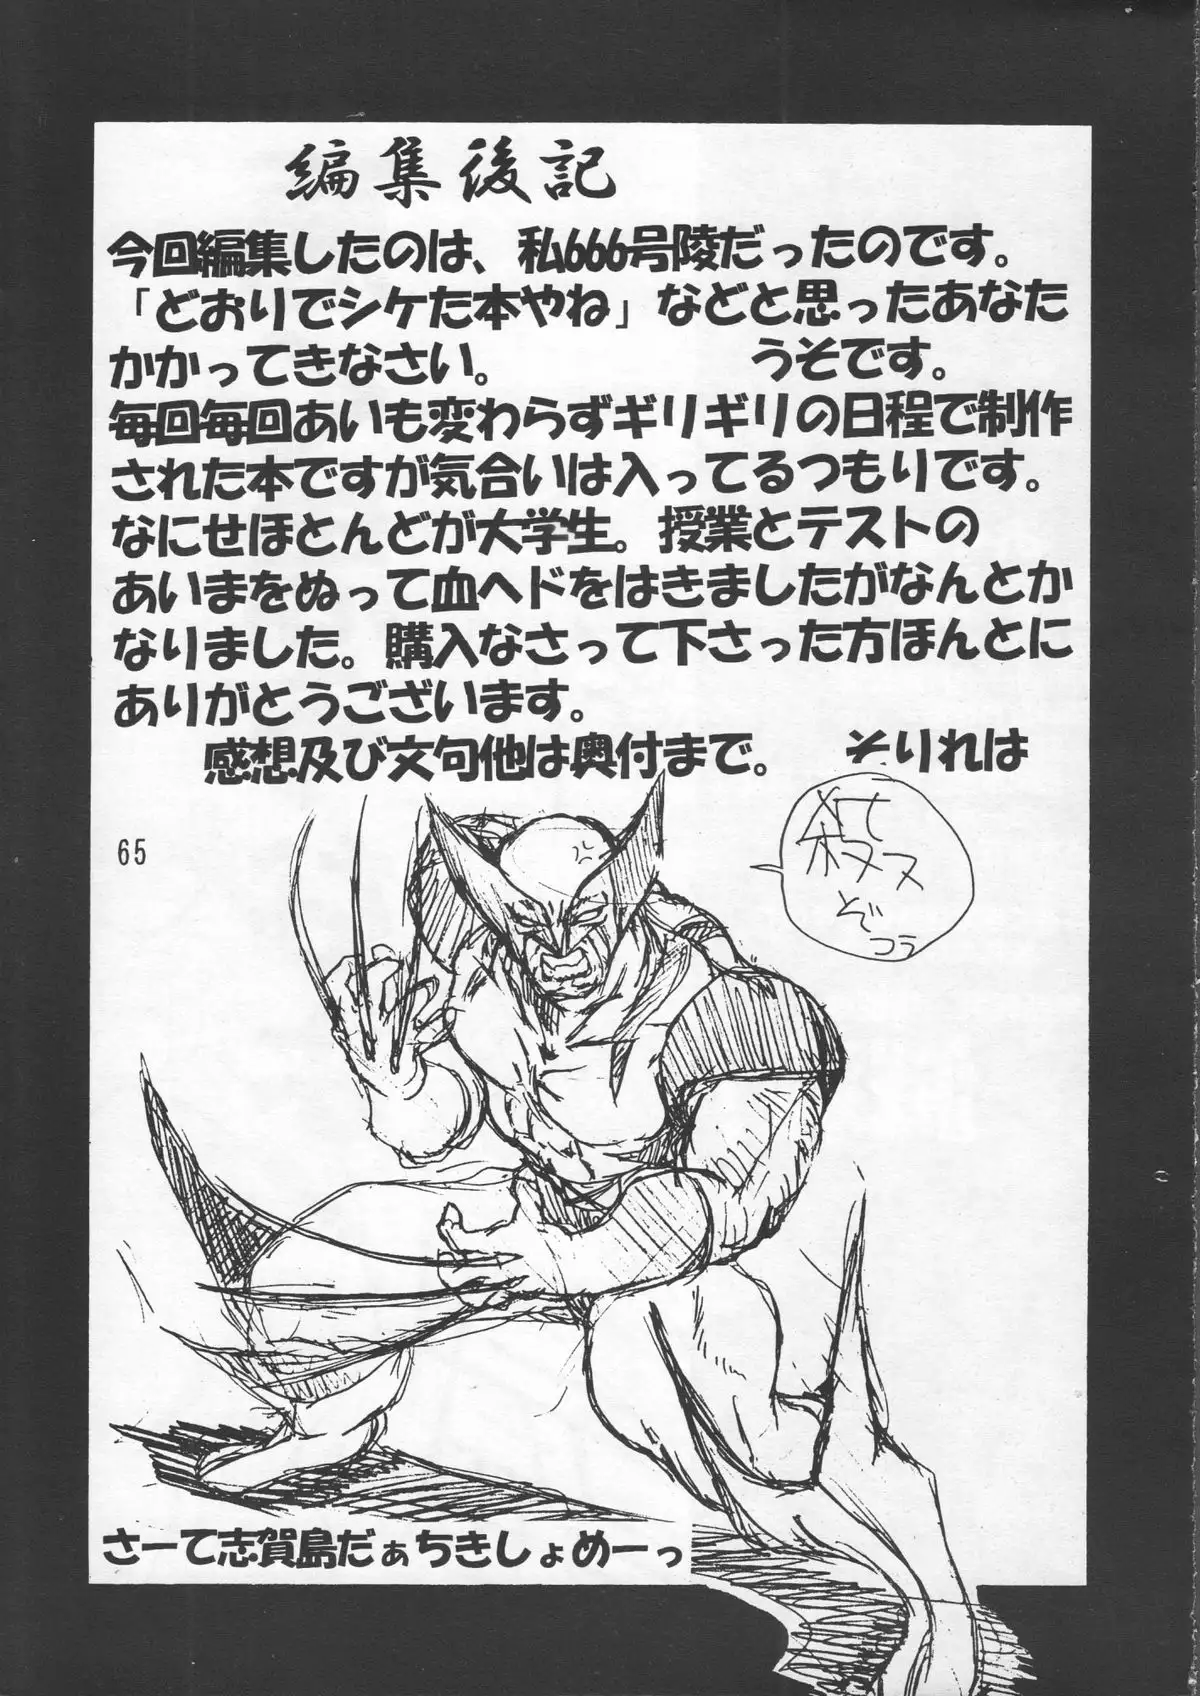 編集後記
今回編集したのは、私666号陵だったのです。
「どおりでシケた本やね」などと思ったあなた
かかってきなさい。 うそです。
毎回毎回あいも変わらずギリギリの日程で制作
された本ですが気合いは入ってるつもりです。
なにせほとんどが大学生。授業とテストの
あいまをぬって血ヘドをはきましたがなんとか
なりました。購入なさって下さった方ほんとに
ありがとうございます。
感想及び文句他は奥付まで。 そりれは
ぞ
コラ
65
さーて志賀島だぁちきしょめーっ